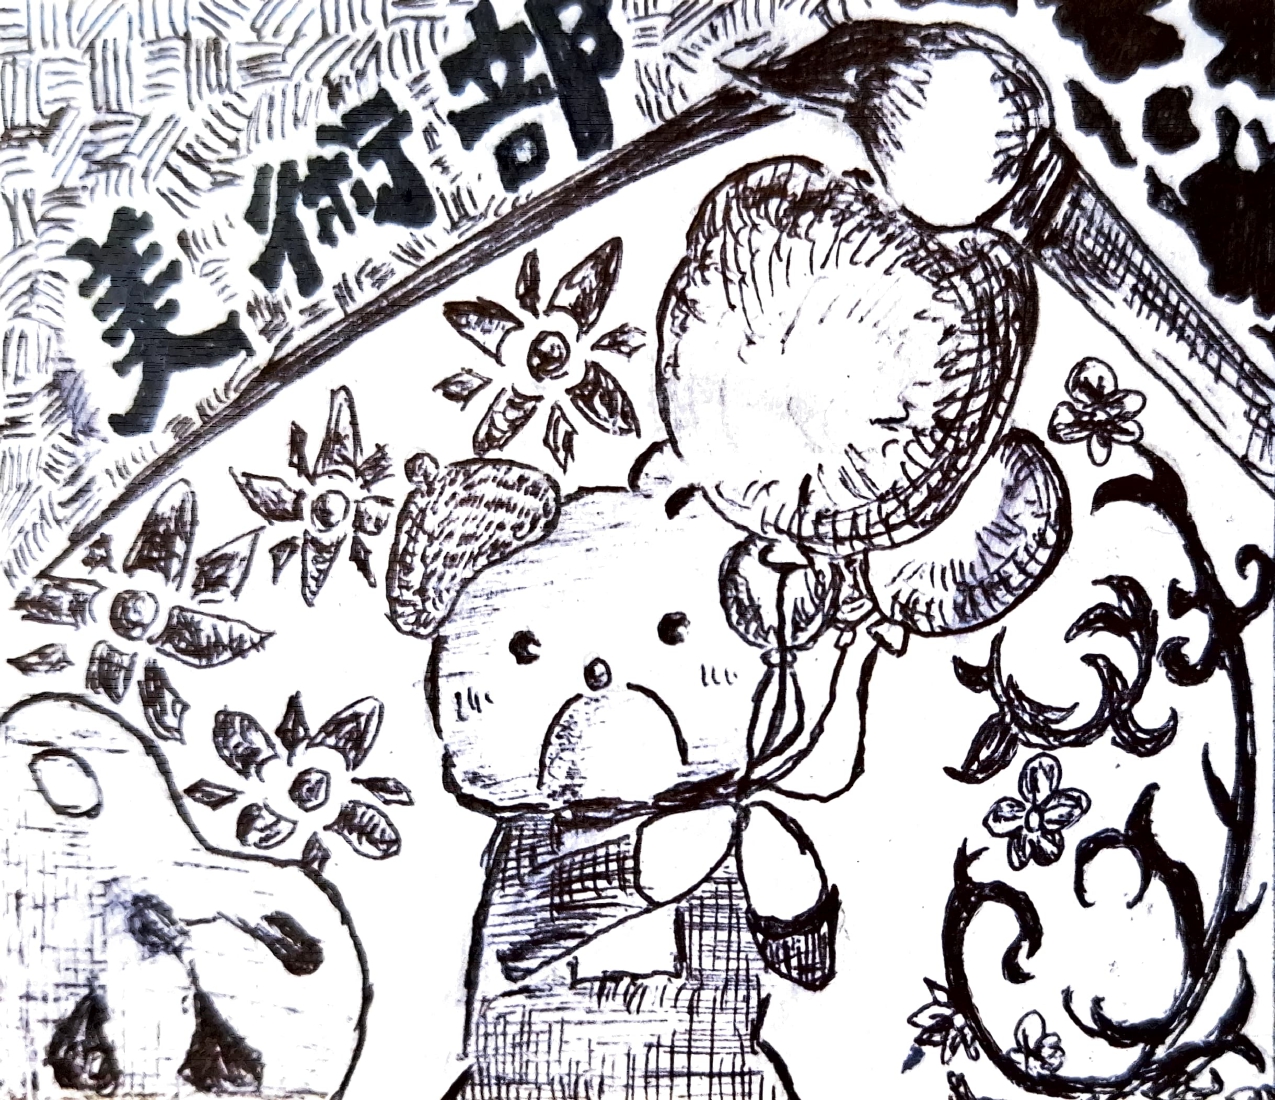 美術部